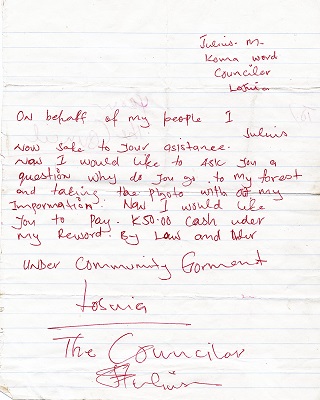 Julius. M.
Koma word
Councilor
Losuia
On behalf of my people I
Julius
Now sale to your asistance.
Now I would like to ask you a
question why do you go to my forest
and taking the photo with out my
Imformation. Now I would like
you to Pay. K50.00 Cash uder
my Reword By Law and
Under Community Gorment
Losuia
The Councilor
Julius